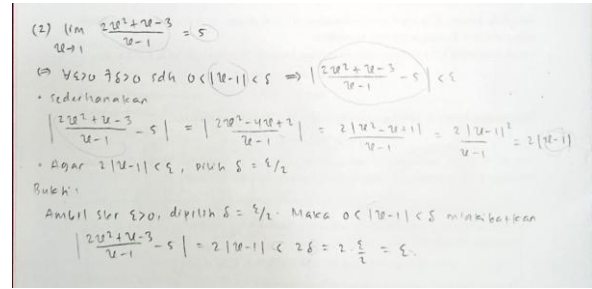 (2) lim 2x²+x-3 / x-1 = 5
x→1
⇔ ∀ε>0 ∃δ>0 sdh 0<|x-1|<δ ⇒ |2x²+x-3 / x-1 - 5| < ε
• Sederhanakan
|2x²+x-3 / x-1 - 5| = |2x²-4x+2 / x-1| = 2|x²-x+1| / x-1 = 2|x-1|² / x-1 = 2|x-1|
• Agar 2|x-1| < ε, pilih δ = ε/2
Bukti:
Ambil sbr ε>0, dipilih δ = ε/2. Maka 0<|x-1|<δ minkibatkan
|2x²+x-3 / x-1 - 5| = 2|x-1| < 2δ = 2·ε/2 = ε.